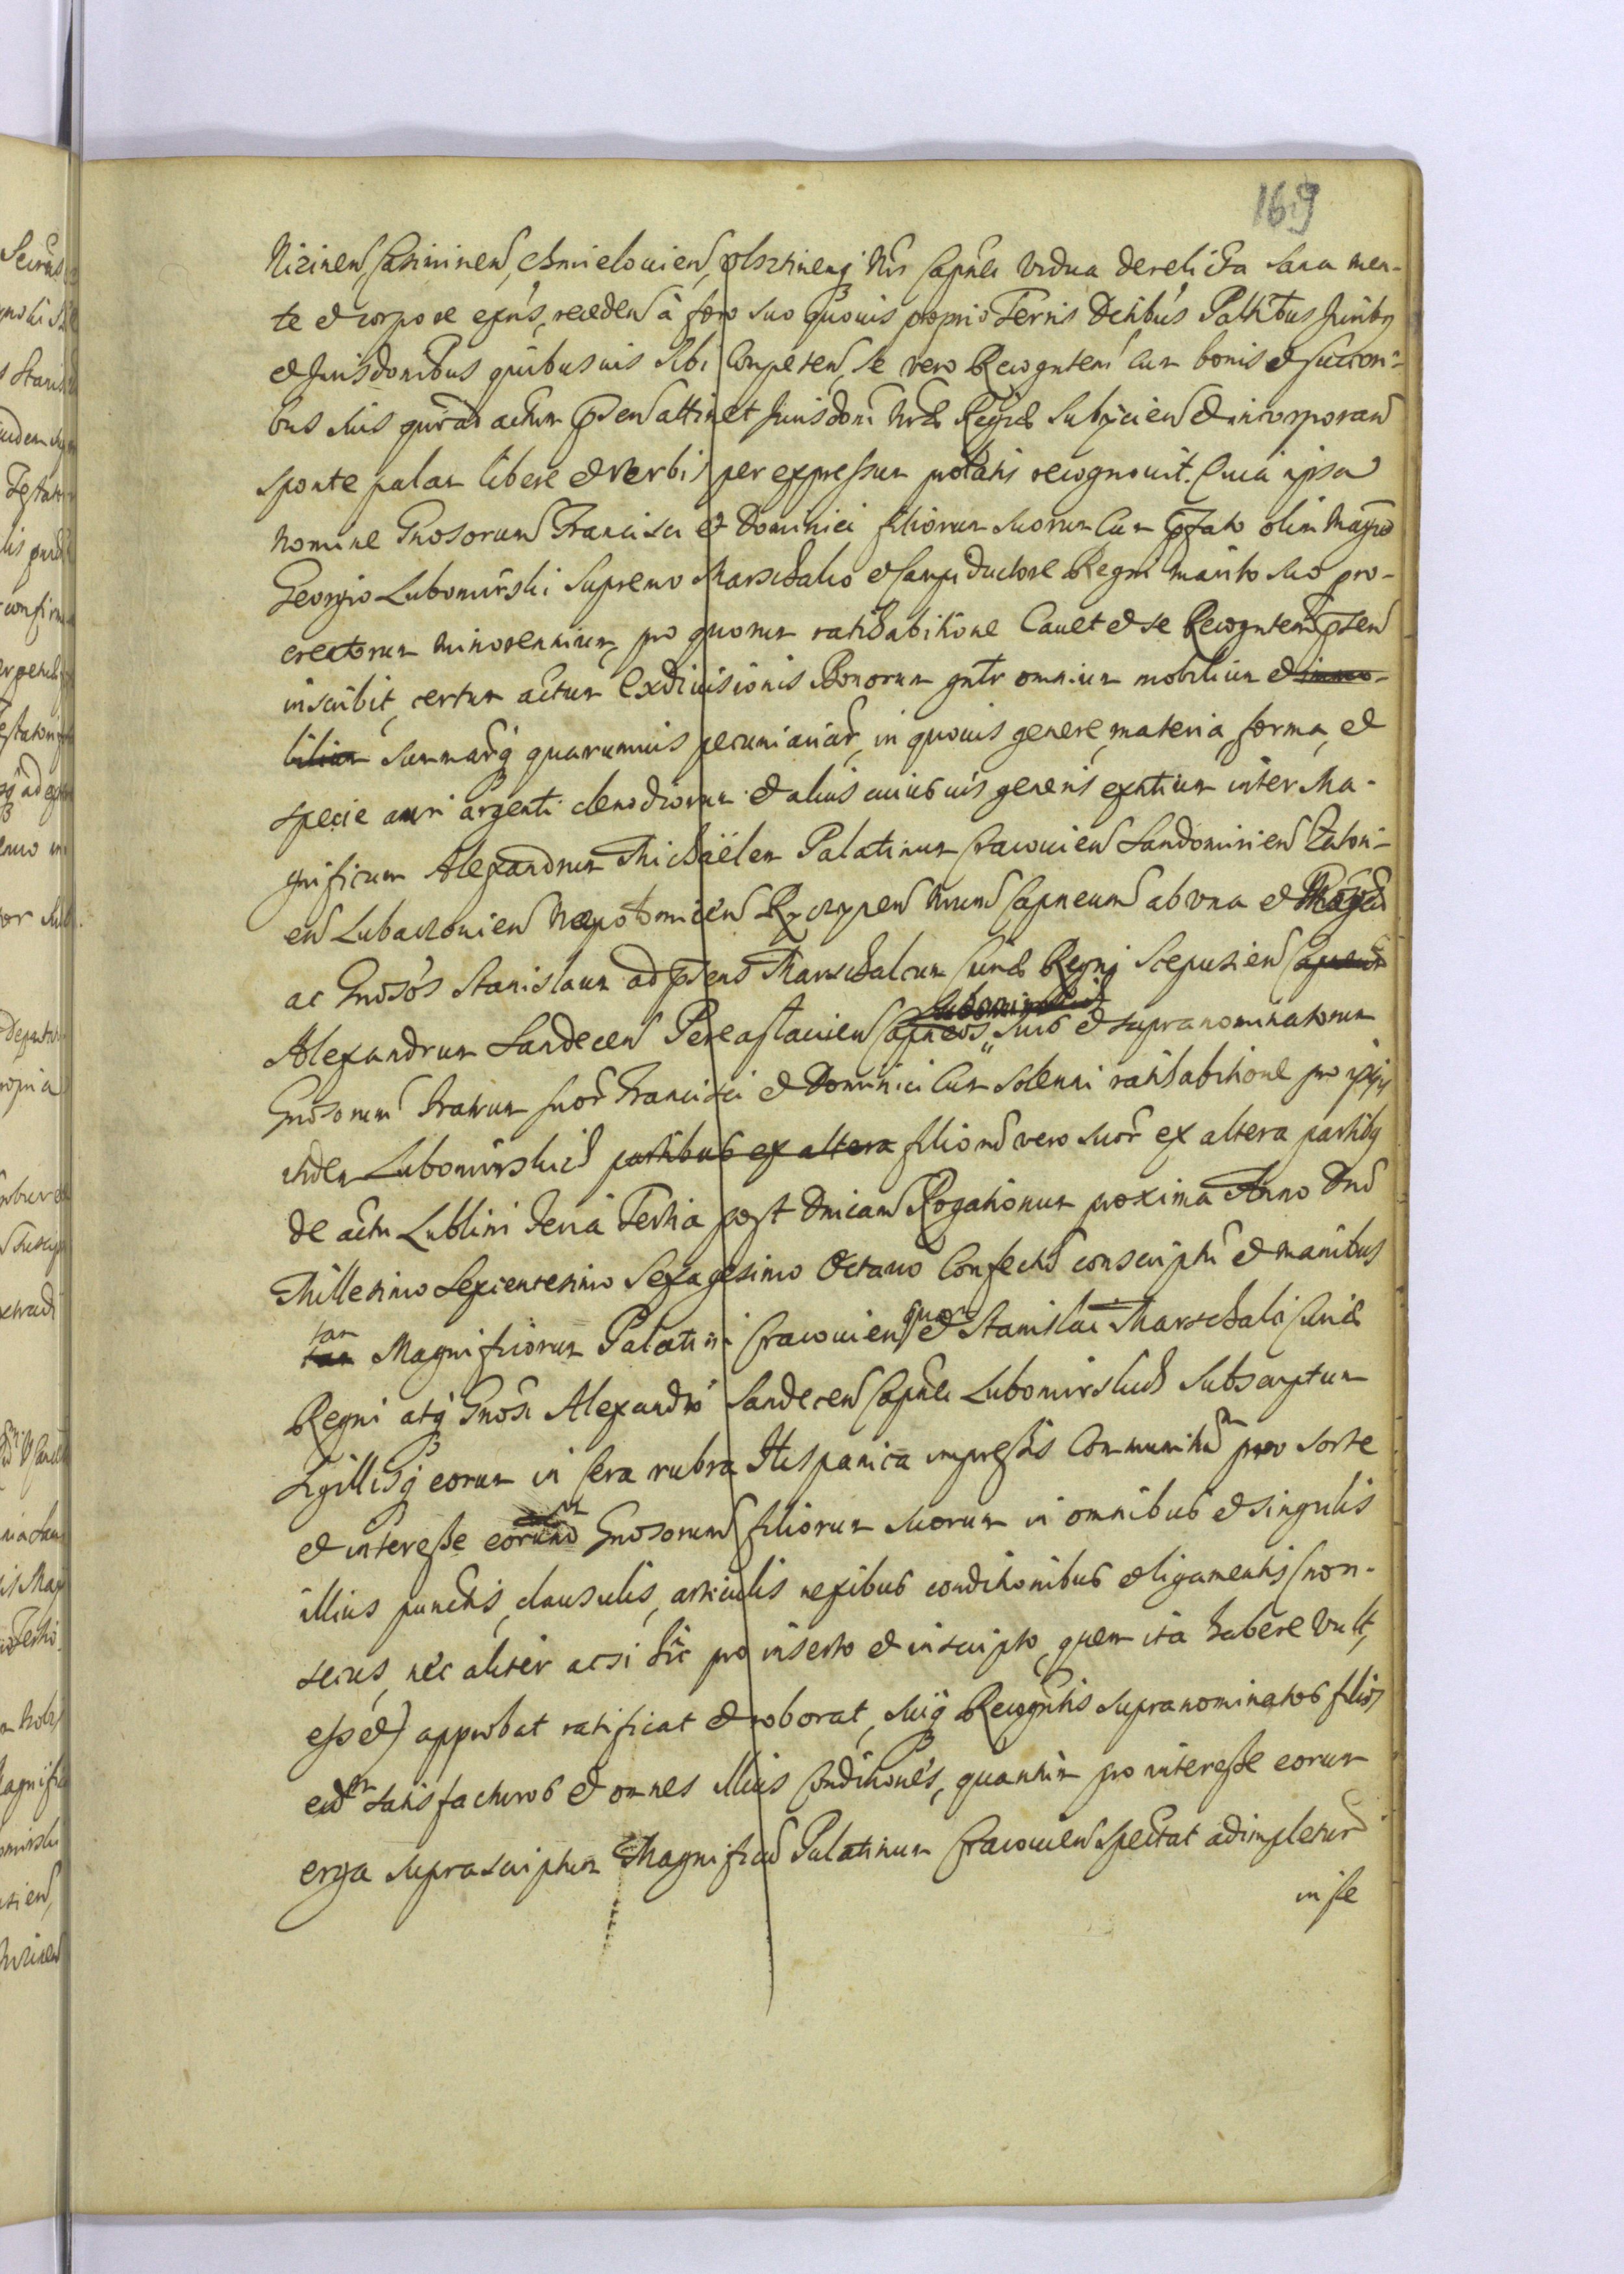 169
Nizinen, Casimirien, Chmielouien, Olsztinenq Nrr Capnei Vidua derelicta sana men-
te et corpore exns, receden à foro suo quouis proprio Terris Dctibus Palttbus Juribq
et Jurisdonibus quibusuis sibi Competen, se vero Recogntem cum bonis et succon-
bus suis quoad actum pnsen attinet Jurisdoni Nrae Regiae Subijcien et incorporan
sponte palam libere et verbis per expressum prolatis recognouit. Quia ipsa
nomine Gnosorum Francisci et Dominici filiorum suorum Cum pfato olim Magco
Georgio Lubomirski Supremo Marschalco et Campiductore Regni marito suo pro-
creatorum minorennium, pro quorum ratihabitione Cauet et se Recogntem psen
inscribit, certum actum Exdiuisionis Bonorum gnlr omnium mobilium et immo-
bilium summarq quarumuis pecuniariar, in quouis genere, materia, forma, et
specie auri argenti clenodiorum et alius cuiusuis generis exntium inter Ma-
gnificum Alexandrum Michaëlem Palatinum Cracouien Sandomirien Zatori-
en Lubaczouien Niepolomicen Ryczypen Nrum Capneum ab vna et Magcu
ac Gnosos Stanislaum ad psens Marschalcum Curiae Regni Scepusien Capneum
Alexandrum Sandecen Pereaslauien Capneos Lubomirskie suo et supranominatorum
Gnosorum Fratrum suor Francisci et Dominici Cum solenni ratihabitione pro ipsis
itidem Lubomirskie partibus ex altera filiorum vero suor ex altera partibq
de actu Lublini Feria Tertia post Dnicam Rogationum proxima Anno Dni
Millesimo Sexcentesimo Sexagesimo Octauo Confectu conscriptu et manibus
tam tam Magnificorum Palatini Cracouien quam et Stanislai Marschalci Curiae
Regni atq Gnosi Alexandri Sandecen Capnei Lubomirskie Subscriptum
Sigillisq eorum in Cera rubra Hispanica impressis Communitum pro sorte
et interesse eorund Gnosorum filiorum suorum in omnibus et singulis
illius punctis, clausulis, articulis nexibus conditionibus et ligamentis (non-
secus, nec aliter acsi hic pro inserto et inscripto, quem ita habere Vult,
esset) approbat ratificat et roborat, suiq Recogntis supranominatos filios
eidm satisfacturos et omnes illius Conditiones, quantum pro interesse eorum
erga suprascriptum Magnificu Palatinum Cracouien spectat adimpletur
in se